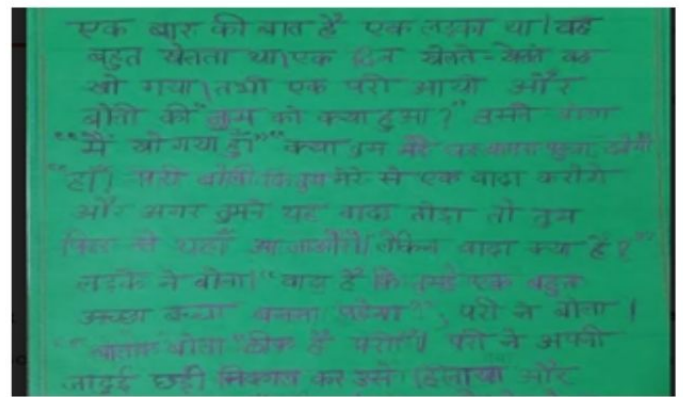 एक बार की बात है एक लड़का था। वह
बहुत खेलता था। एक दिन खेलते-खेलते वह
खो गया। तभी एक परी आयी और
बोली की "तुम को क्या हुआ?" उसने बोला
"मैं खो गया हुँ" "क्या तुम मेरे घर
"हाँ। परी बोली कि तुम मेरे से एक वादा करोगे
और अगर तुमने यह वादा तोड़ा तो तुम
फिर से यहाँ आ जाओगे। लेकिन वादा क्या है?"
लड़के ने बोला। "वादा है कि तुम्हे एक बहुत
अच्छा बच्चा बनना पड़ेगा?", परी ने बोला।
बोला "ठीक है परी"। परी ने अपनी
जादुई छड़ी निकाल कर उसे हिलाया और